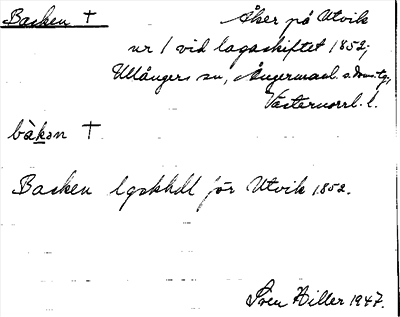 Backen † Åker på Utvik
nr 1 vid lagaskiftet 1852;
Ullångers sn, Ångermanl. s. domsg,
Västernorrl. l.
bàkən †
Backen lgskhdl för Utvik 1852.
Sven Hiller 1947.